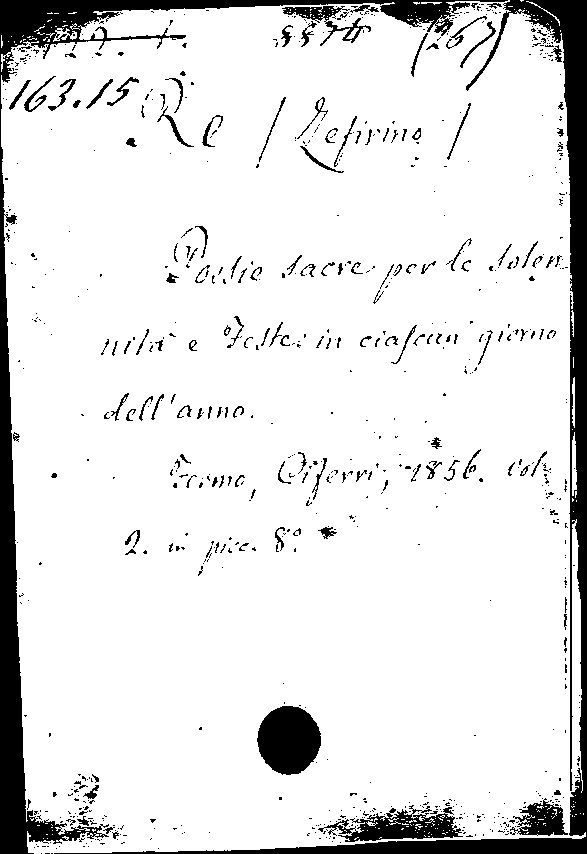 122. 1. 8874 (267)
163.15
Re / Zefirino /
Poesie sacre per le solen
nità e Feste in ciascun giorno
dell'anno.
Fermo, Ciferri, 1856. vol.
2. in picc. 8º.